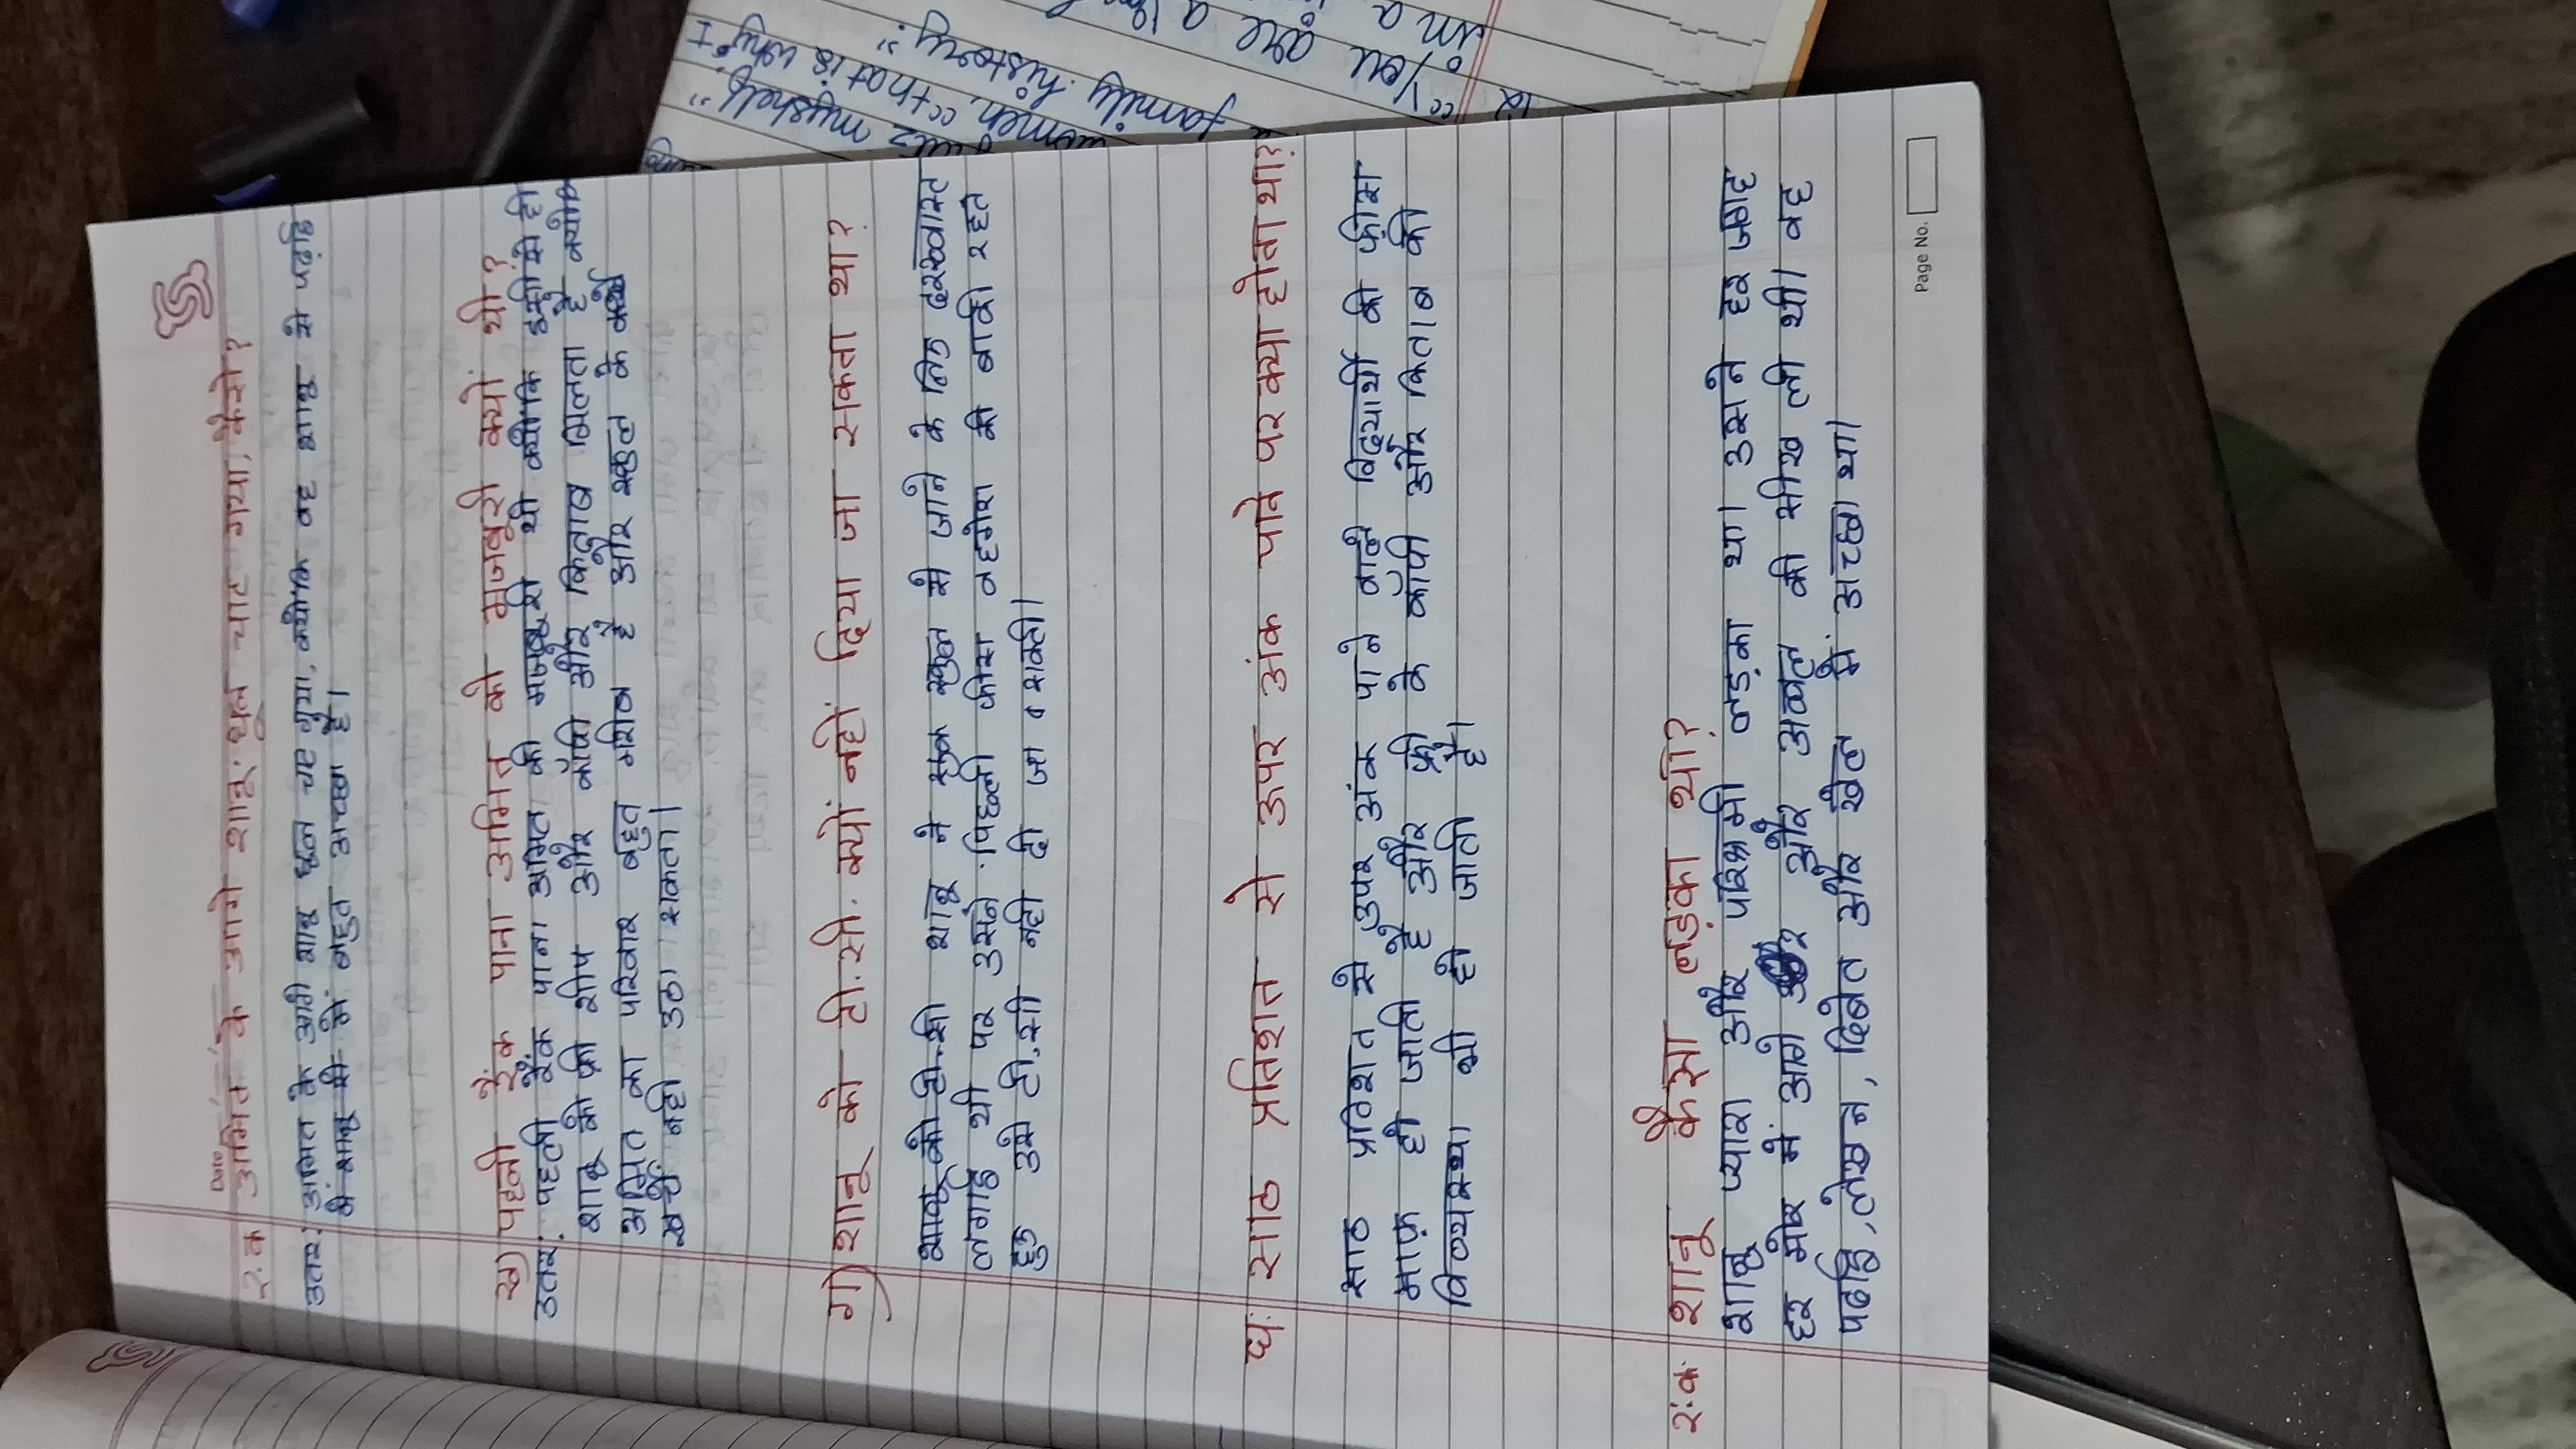 Date
२.क अमित के आगे शानू धूल चाट गया, कैसे?
उतर: अमित के आगे शानू धूल चट गया, क्योकि वह शानू से पढ़ाई
में शानू से में बहुत अच्छा है।
ख) पहली रैंक पाना अमित की मजबूरी क्यों थी?
उतर: पहली रैंक पाना अमित की मजबूरी थी क्योकि इसी से ही
शानू को फ्री शीप और कॉपी और किताब मिलता है क्योकि
अमित का परिवार बहुत गरीब है और स्कुल के
खर्चे नही उठा सकता।
ग) शानू को टी.सी. क्यों नहीं दिया जा सकता था?
शानू को टी.सी शानू ने स्कुल से जाने के लिए दरख्वास्त
लगाई थी पर उसने पिछली फीस वहगेरा की बाकी रहते
हुए उसे टी.सी नही दी जा सकती।
घ: साठ प्रतिशत से ऊपर अंक पाने पर क्या होता था?
साठ प्रतिशत से उपर अंक पाने वाले विद्यार्थी की फ़ीस
माफ़ हो जाती है और फ्री के कॉपी और किताब की
भी हो जाती है।
२:क शानू कैसा लड़का था?
शानू प्यारा और परिश्रमी लड़का था। उसने हर जगह
हर मेर में आगे और अव्वल की सीख ली थी। वह
पढाई, लेखन, डिबेट और खेल में अच्छा था।
Page No.
myshelf"
women, "that is why I
family history."
"You are a
in a